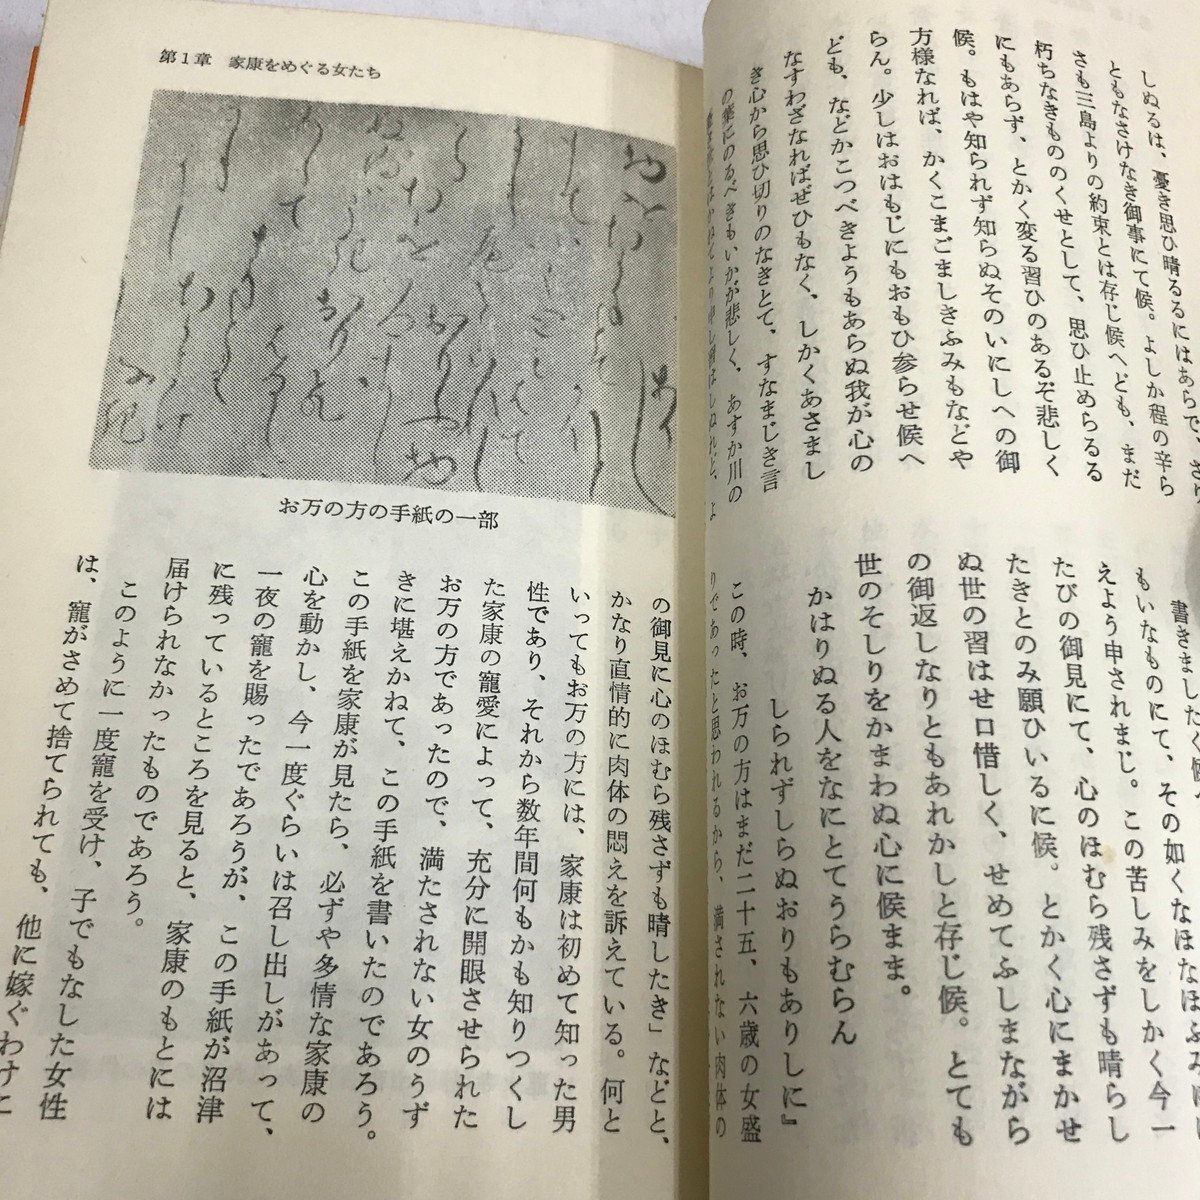 しぬるは、憂き思ひ晴るるにはあらで、さり
ともなさけなき御事にて候。よしか程の辛ら
さも三島よりの約束とは存じ候へども、まだ
朽ちなきもののくせとして、思ひ止めらるる
にもあらず、とかく変る習ひのあるぞ悲しく
候。もはや知られず知らぬそのいにしへの御
方様なれば、かくこまごましきふみもなどや
らん。少しはおはもじにもおもひ参らせ候へ
ども、などかこつべきようもあらぬ我が心の
なすわざなればぜひもなく、しかくあさまし
き心から思ひ切りのなきとて、すなまじき言
の葉にのるべきもいかが悲しく、あすか川の
書きましたく候へ
もいなものにて、その如くなほなほふみ
えよう申されまじ。この苦しみをしかく今一
たびの御見にて、心のほむら残さずも晴らし
たきとのみ願ひいるに候。とかく心にまかせ
ぬ世の習はせ口惜しく、せめてふしまながら
の御返しなりともあれかしと存じ候。とても
世のそしりをかまわぬ心に候まま。
かはりぬる人をなにとてうらむらん
しられずしらぬおりもありしに』
この時、お万の方はまだ二十五、六歳の女盛
りであったと思われるから、満されない肉体の
第1章　家康をめぐる女たち
お万の方の手紙の一部
の御見に心のほむら残さずも晴したき」などと、
かなり直情的に肉体の悶えを訴えている。何と
いってもお万の方には、家康は初めて知った男
性であり、それから数年間何もかも知りつくし
た家康の寵愛によって、充分に開眼させられた
お万の方であったので、満たされない女のうず
きに堪えかねて、この手紙を書いたのであろう。
この手紙を家康が見たら、必ずや多情な家康の
心を動かし、今一度ぐらいは召し出しがあって、
一夜の寵を賜ったであろうが、この手紙が沼津
に残っているところを見ると、家康のもとには
届けられなかったものであろう。
このように一度寵を受け、子でもなした女性
は、寵がさめて捨てられても、他に嫁ぐわけに